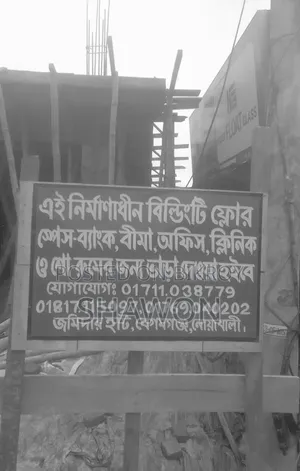 এই নির্মাণাধীন বিল্ডিংটি ফ্লোর
স্পেস-ব্যাংক, বীমা, অফিস, ক্লিনিক
ও শো-রুমের জন্য ভাড়া দেওয়া হইবে
যোগাযোগঃ 01711.038779
জমিদার হাট, বেগমগঞ্জ, নোয়াখালী।
SHAWON